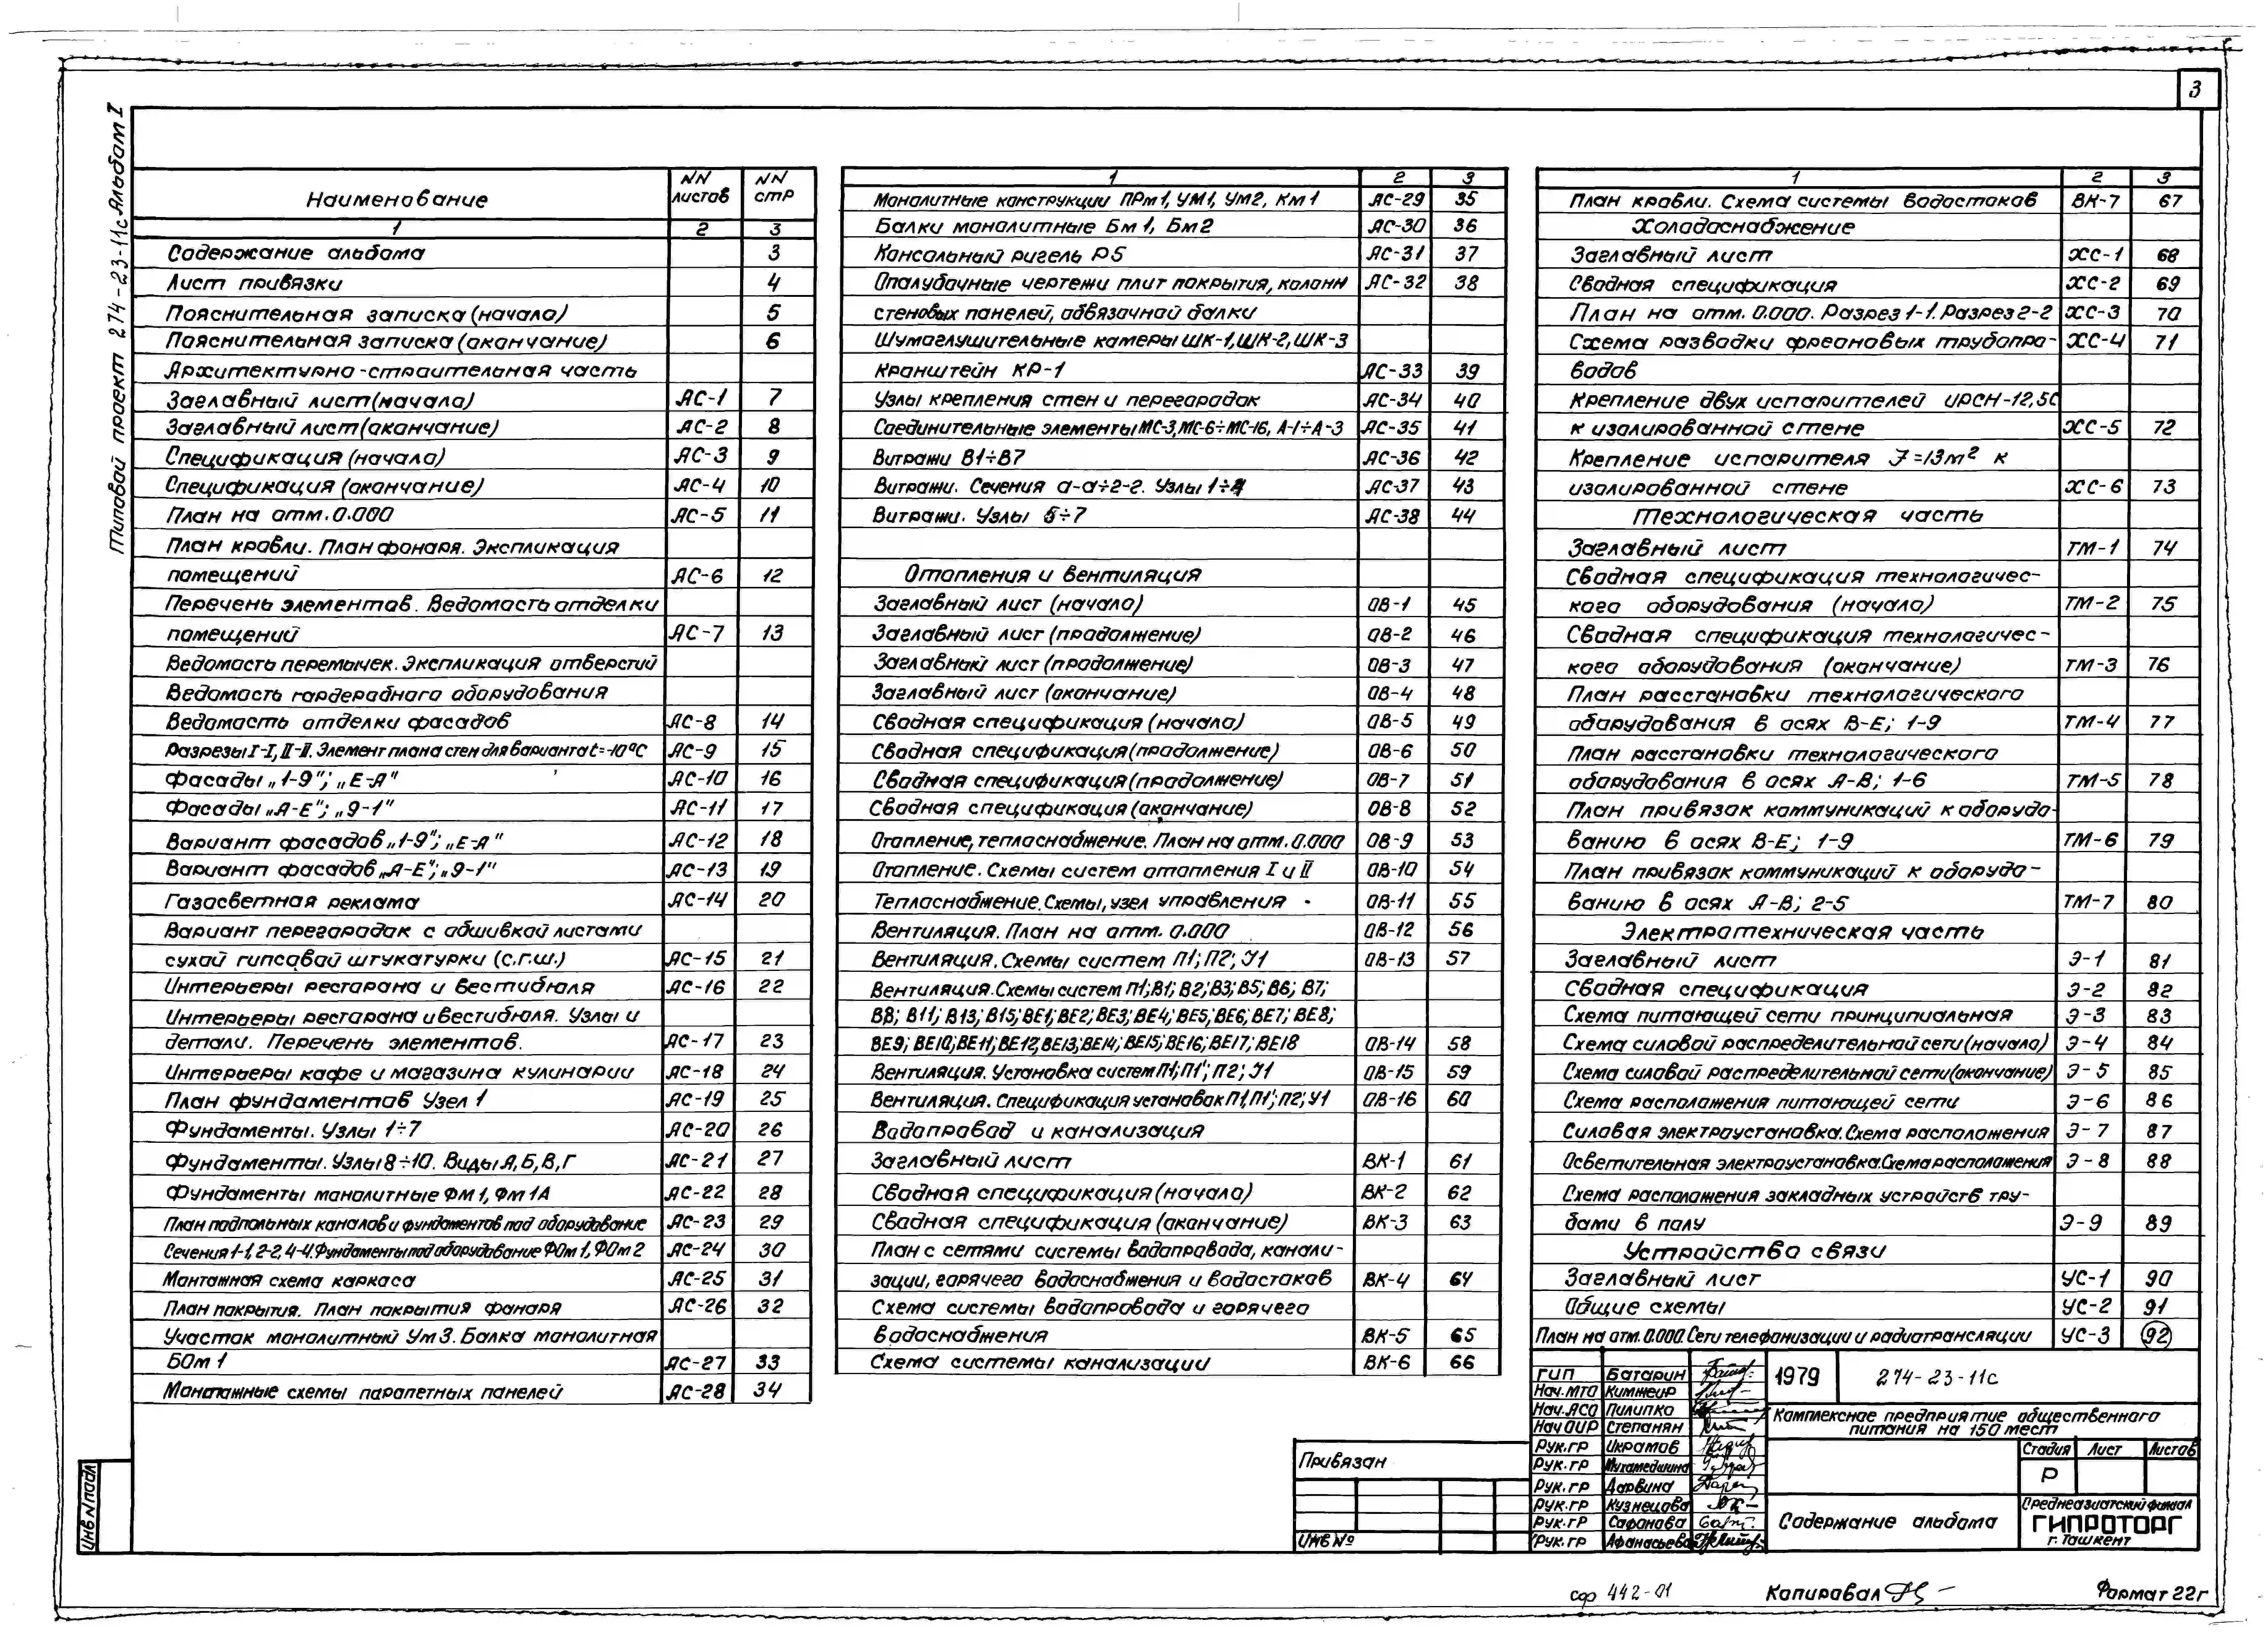 3
Типовой проект 274-23-11с Альбом I
Наименование | NN листов | NN стр
1 | 2 | 3
Содержание альбома | 3
Лист привязки | 4
Пояснительная записка (начало) | 5
Пояснительная записка (окончание) | 6
Архитектурно-строительная часть
Заглавный лист (начало) | АС-1 | 7
Заглавный лист (окончание) | АС-2 | 8
Спецификация (начало) | АС-3 | 9
Спецификация (окончание) | АС-4 | 10
План на отм. 0.000 | АС-5 | 11
План кровли. План фонаря. Экспликация
помещений | АС-6 | 12
Перечень элементов. Ведомость отделки
помещений | АС-7 | 13
Ведомость перемычек. Экспликация отверстий
Ведомость гардеробного оборудования
Ведомость отделки фасадов | АС-8 | 14
Разрезы I-I, II-II. Элемент плана стен для варианта t=-10°С | АС-9 | 15
Фасады „1-9"; „Е-А" | АС-10 | 16
Фасады „А-Е"; „9-1" | АС-11 | 17
Вариант фасадов „1-9"; „Е-А" | АС-12 | 18
Вариант фасадов „А-Е"; „9-1" | АС-13 | 19
Газосветная реклама | АС-14 | 20
Вариант перегородок с обшивкой листами
сухой гипсовой штукатурки (с.г.ш.) | АС-15 | 21
Интерьеры ресторана и вестибюля | АС-16 | 22
Интерьеры ресторана и вестибюля. Узлы и
детали. Перечень элементов. | АС-17 | 23
Интерьеры кафе и магазина кулинарии | АС-18 | 24
План фундаментов Узел 1 | АС-19 | 25
Фундаменты. Узлы 1÷7 | АС-20 | 26
Фундаменты. Узлы 8÷10. Виды А, Б, В, Г | АС-21 | 27
Фундаменты монолитные Фм 1, Фм 1А | АС-22 | 28
План подпольных каналов и фундаментов под оборудование | АС-23 | 29
Сечения 1-1, 2-2, 4-4. Фундаменты под оборудование ФОм 1, ФОм 2 | АС-24 | 30
Монтажная схема каркаса | АС-25 | 31
План покрытия. План покрытия фонаря | АС-26 | 32
Участок монолитный Ум 3. Балка монолитная
БОм 1 | АС-27 | 33
Монтажные схемы парапетных панелей | АС-28 | 34
1 | 2 | 3
Монолитные конструкции ПРм 1, УМ 1, Ум 2, Км 1 | АС-29 | 35
Балки монолитные Бм 1, Бм 2 | АС-30 | 36
Консольный ригель Р5 | АС-31 | 37
Опалубочные чертежи плит покрытия, колонн | АС-32 | 38
стеновых панелей, обвязочной балки
Шумоглушительные камеры ШК-1, ШК-2, ШК-3
Кранштейн КР-1 | АС-33 | 39
Узлы крепления стен и перегородок | АС-34 | 40
Соединительные элементы МС-3, МС-6÷МС-16, А-1÷А-3 | АС-35 | 41
Витражи В1÷В7 | АС-36 | 42
Витражи. Сечения а-а÷г-г. Узлы 1÷4 | АС-37 | 43
Витражи. Узлы 5÷7 | АС-38 | 44
Отопления и вентиляция
Заглавный лист (начало) | ОВ-1 | 45
Заглавный лист (продолжение) | ОВ-2 | 46
Заглавный лист (продолжение) | ОВ-3 | 47
Заглавный лист (окончание) | ОВ-4 | 48
Сводная спецификация (начало) | ОВ-5 | 49
Сводная спецификация (продолжение) | ОВ-6 | 50
Сводная спецификация (продолжение) | ОВ-7 | 51
Сводная спецификация (окончание) | ОВ-8 | 52
Отопление, теплоснабжение. План на отм. 0.000 | ОВ-9 | 53
Отопление. Схемы систем отопления I и II | ОВ-10 | 54
Теплоснабжение. Схемы, узел управления | ОВ-11 | 55
Вентиляция. План на отм. 0.000 | ОВ-12 | 56
Вентиляция. Схемы систем П1; П2; У1 | ОВ-13 | 57
Вентиляция. Схемы систем П1; В1; В2; В3; В5; В6; В7;
В8; В11; В13; В15; ВЕ1; ВЕ2; ВЕ3; ВЕ4; ВЕ5; ВЕ6; ВЕ7; ВЕ8;
ВЕ9; ВЕ10; ВЕ11; ВЕ12; ВЕ13; ВЕ14; ВЕ15; ВЕ16; ВЕ17; ВЕ18 | ОВ-14 | 58
Вентиляция. Установка систем П1; П1'; П2; У1 | ОВ-15 | 59
Вентиляция. Спецификация установок П1, П1'; П2; У1 | ОВ-16 | 60
Водопровод и канализация
Заглавный лист | ВК-1 | 61
Сводная спецификация (начало) | ВК-2 | 62
Сводная спецификация (окончание) | ВК-3 | 63
План с сетями системы водопровода, канали-
зации, горячего водоснабжения и водостоков | ВК-4 | 64
Схема системы водопровода и горячего
водоснабжения | ВК-5 | 65
Схема системы канализации | ВК-6 | 66
1 | 2 | 3
План кровли. Схема системы водостоков | ВК-7 | 67
Холодоснабжение
Заглавный лист | ХС-1 | 68
Сводная спецификация | ХС-2 | 69
План на отм. 0.000. Разрез 1-1. Разрез 2-2 | ХС-3 | 70
Схема разводки фреоновых трубопро- | ХС-4 | 71
водов
Крепление двух испарителей ИРСН-12,5С
к изолированной стене | ХС-5 | 72
Крепление испарителя F=13м² к
изолированной стене | ХС-6 | 73
Технологическая часть
Заглавный лист | ТМ-1 | 74
Сводная спецификация технологичес-
кого оборудования (начало) | ТМ-2 | 75
Сводная спецификация технологичес-
кого оборудования (окончание) | ТМ-3 | 76
План расстановки технологического
оборудования в осях В-Е; 1-9 | ТМ-4 | 77
План расстановки технологического
оборудования в осях А-В; 1-6 | ТМ-5 | 78
План привязок коммуникаций к оборудо-
ванию в осях В-Е; 1-9 | ТМ-6 | 79
План привязок коммуникаций к оборудо-
ванию в осях А-В; 2-5 | ТМ-7 | 80
Электротехническая часть
Заглавный лист | Э-1 | 81
Сводная спецификация | Э-2 | 82
Схема питающей сети принципиальная | Э-3 | 83
Схема силовой распределительной сети (начало) | Э-4 | 84
Схема силовой распределительной сети (окончание) | Э-5 | 85
Схема расположения питающей сети | Э-6 | 86
Силовая электроустановка. Схема расположения | Э-7 | 87
Осветительная электроустановка. Схема расположения | Э-8 | 88
Схема расположения закладных устройств тру-
бами в полу | Э-9 | 89
Устройства связи
Заглавный лист | УС-1 | 90
Общие схемы | УС-2 | 91
План на отм. 0.000. Сети телефонизации и радиотрансляции | УС-3 | 92
ГИП | Батарин
Нач. МТО | Кимжеир
Нач. АСО | Пилипко
Нач ОИР | Степанян
Рук. гр | Икрамов
Рук. гр | Мухамедшина
Рук. гр | Дарвина
Рук. гр | Кузнецова
Рук. гр | Сафонова
Рук. гр | Афанасьева
1979 | 274-23-11с
Комплексное предприятие общественного
питания на 150 мест
Стадия | Лист | Листов
Р
Содержание альбома
Среднеазиатский филиал
ГИПРОТОРГ
г. Ташкент
Привязан
Инв №
Инв N подл
сф 442-01
Копировал
Формат 22г